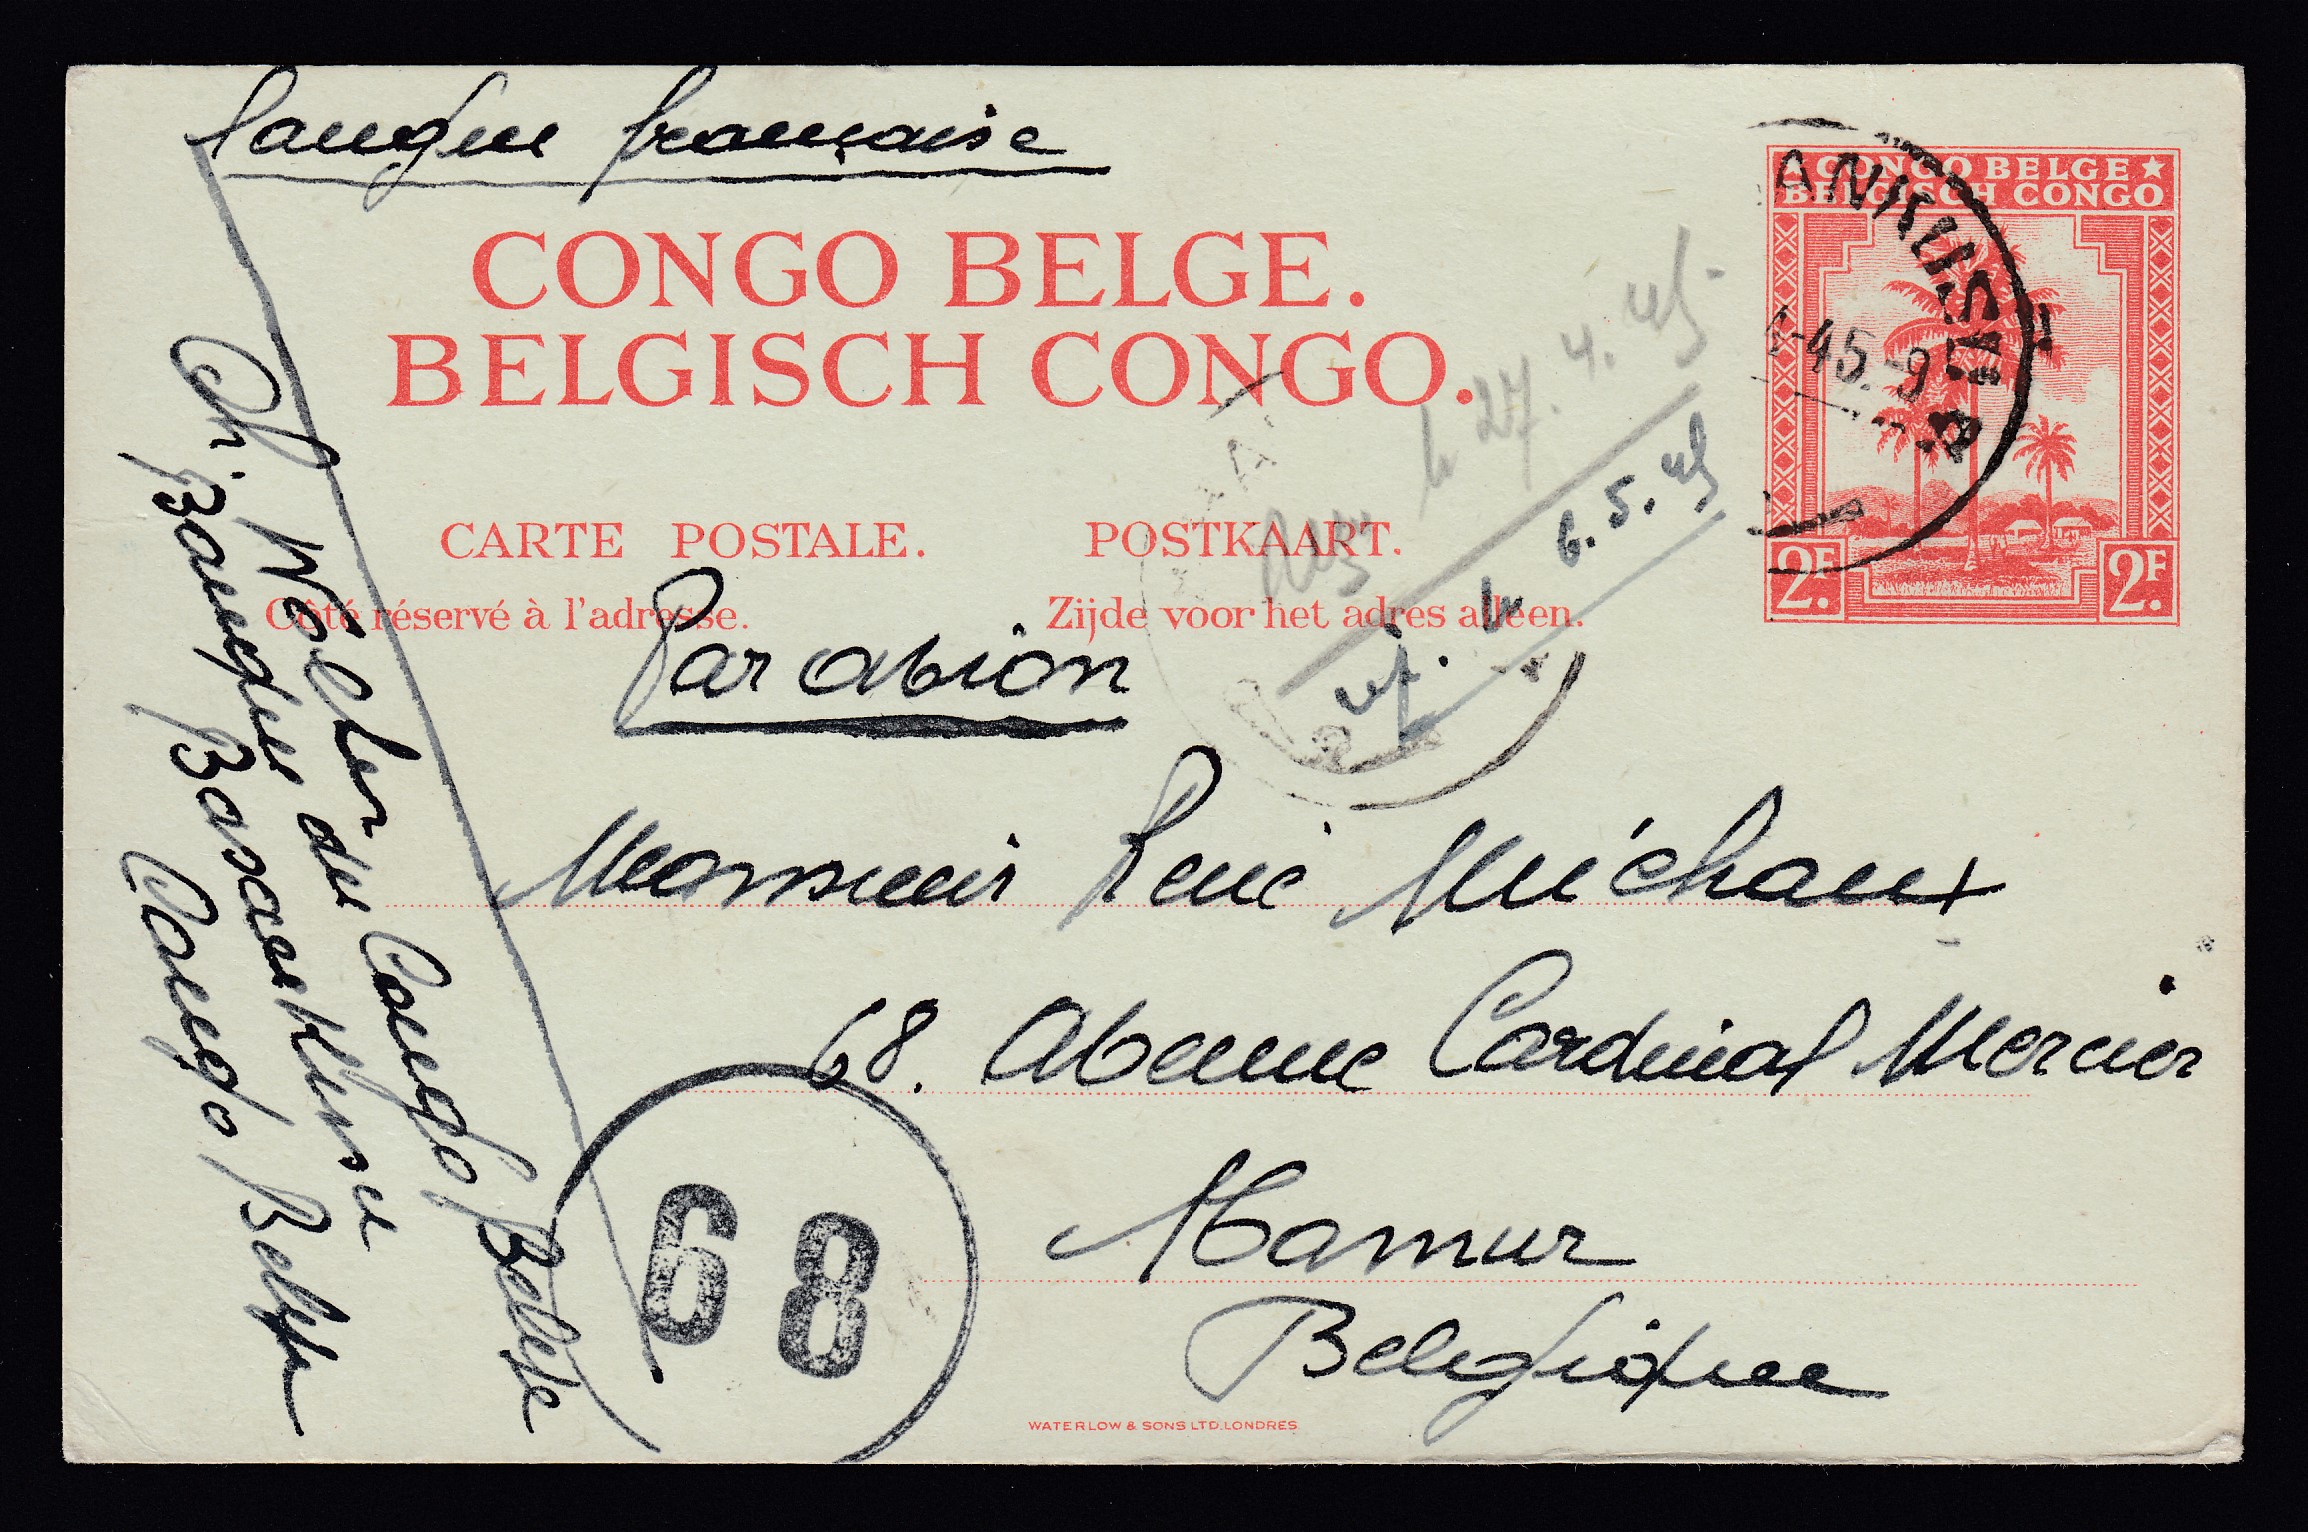 langue française
CONGO BELGE.
BELGISCH CONGO.
CARTE POSTALE. POSTKAART.
Côté réservé à l'adresse. Zijde voor het adres alleen.
CONGO BELGE
BELGISCH CONGO
2F. 2F.
4-45-9
27.4.45
6.5.45
Par avion
Monsieur René Michaux
68. Avenue Cardinal Mercier
Namur
Belgique
du Congo Belge
Banque du
Congo Belge
68
WATERLOW & SONS LTD. LONDRES